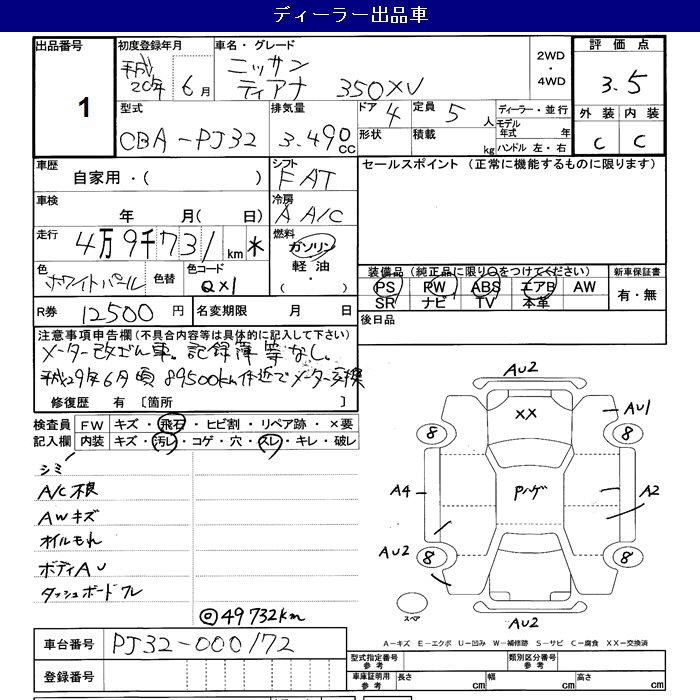 ディーラー出品車
出品番号 1
初度登録年月 平成20年 6月
車名・グレード ニッサン ティアナ 350XV
2WD ・ 4WD
評価点 3.5
型式 CBA-PJ32
排気量 3.490 CC
ドア 4 形状
定員 5 人 積載 kg
ディーラー・並行
モデル年式 年
ハンドル 左・右
外装 内装
C C
車歴 自家用・( )
シフト FAT
セールスポイント (正常に機能するものに限ります)
車検 年 月( 日)
冷房 A A/C
走行 4万9千731 km *
燃料 ガソリン 軽油 ( ・ )
色 ホワイトパール 色替
色コード QX1
装備品 (純正品に限り○をつけてください) 新車保証書
PS PW ABS エアB AW
SR ナビ TV 本革
有・無
R券 12500 円
名変期限 月 日
後日品
注意事項申告欄(不具合内容等は具体的に記入して下さい)
メーター改ざん車。記録簿等なし。
平成29年6月頃 89500km付近でメーター交換
修復歴 有 [箇所 ]
検査員 FW キズ・飛石・ヒビ割・リペア跡・×要
記入欄 内装 キズ・汚レ・コゲ・穴・スレ・キレ・破レ
シミ
A/C不良
AWキズ
オイルもれ
ボディAU
ダッシュボードワレ
◎49732km
AU2
XX
AU1
8 8
A4 Pハゲ A2
AU2
8 8
スペア
AU2
A-キズ E-エクボ U-凹み W-補修跡 S-サビ C-腐食 XX-交換済
車台番号 PJ32-000172
型式指定番号 参考
類別区分番号 参考
登録番号
車庫証明用 参考 長さ cm 幅 cm 高さ cm